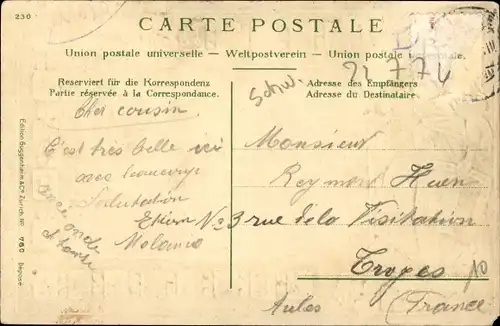 230
CARTE POSTALE
Union postale universelle – Weltpostverein – Union postale
Reserviert für die Korrespondenz
Partie réservée à la Correspondance.
Adresse des Empfängers
Adresse du Destinataire
Schw.
22 774
Cher cousin
C'est très belle ici
avec beaucoup
Salutation
Etienn
Melania
oncle
et tante
Monsieur
Reymond Huen
No 3 rue de la Visitation
Troyes
10
Aules
(France)
Edition Guggenheim & Co Zürich
Déposé